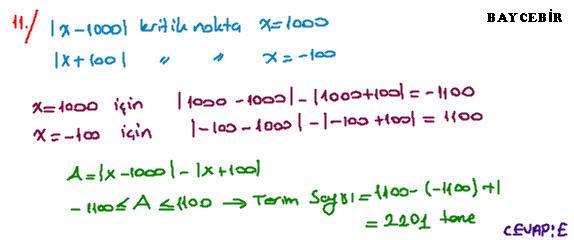 BAYCEBİR
11./ |x-1000| kritik nokta x=1000
|x+100| " " x=-100
x=1000 için |1000-1000|-|1000+100|=-1100
x=-100 için |-100-1000|-|-100+100|=1100
A=|x-1000|-|x+100|
-1100≤A≤1100 → Terim Sayısı=1100-(-1100)+1
=2201 tane
CEVAP:E